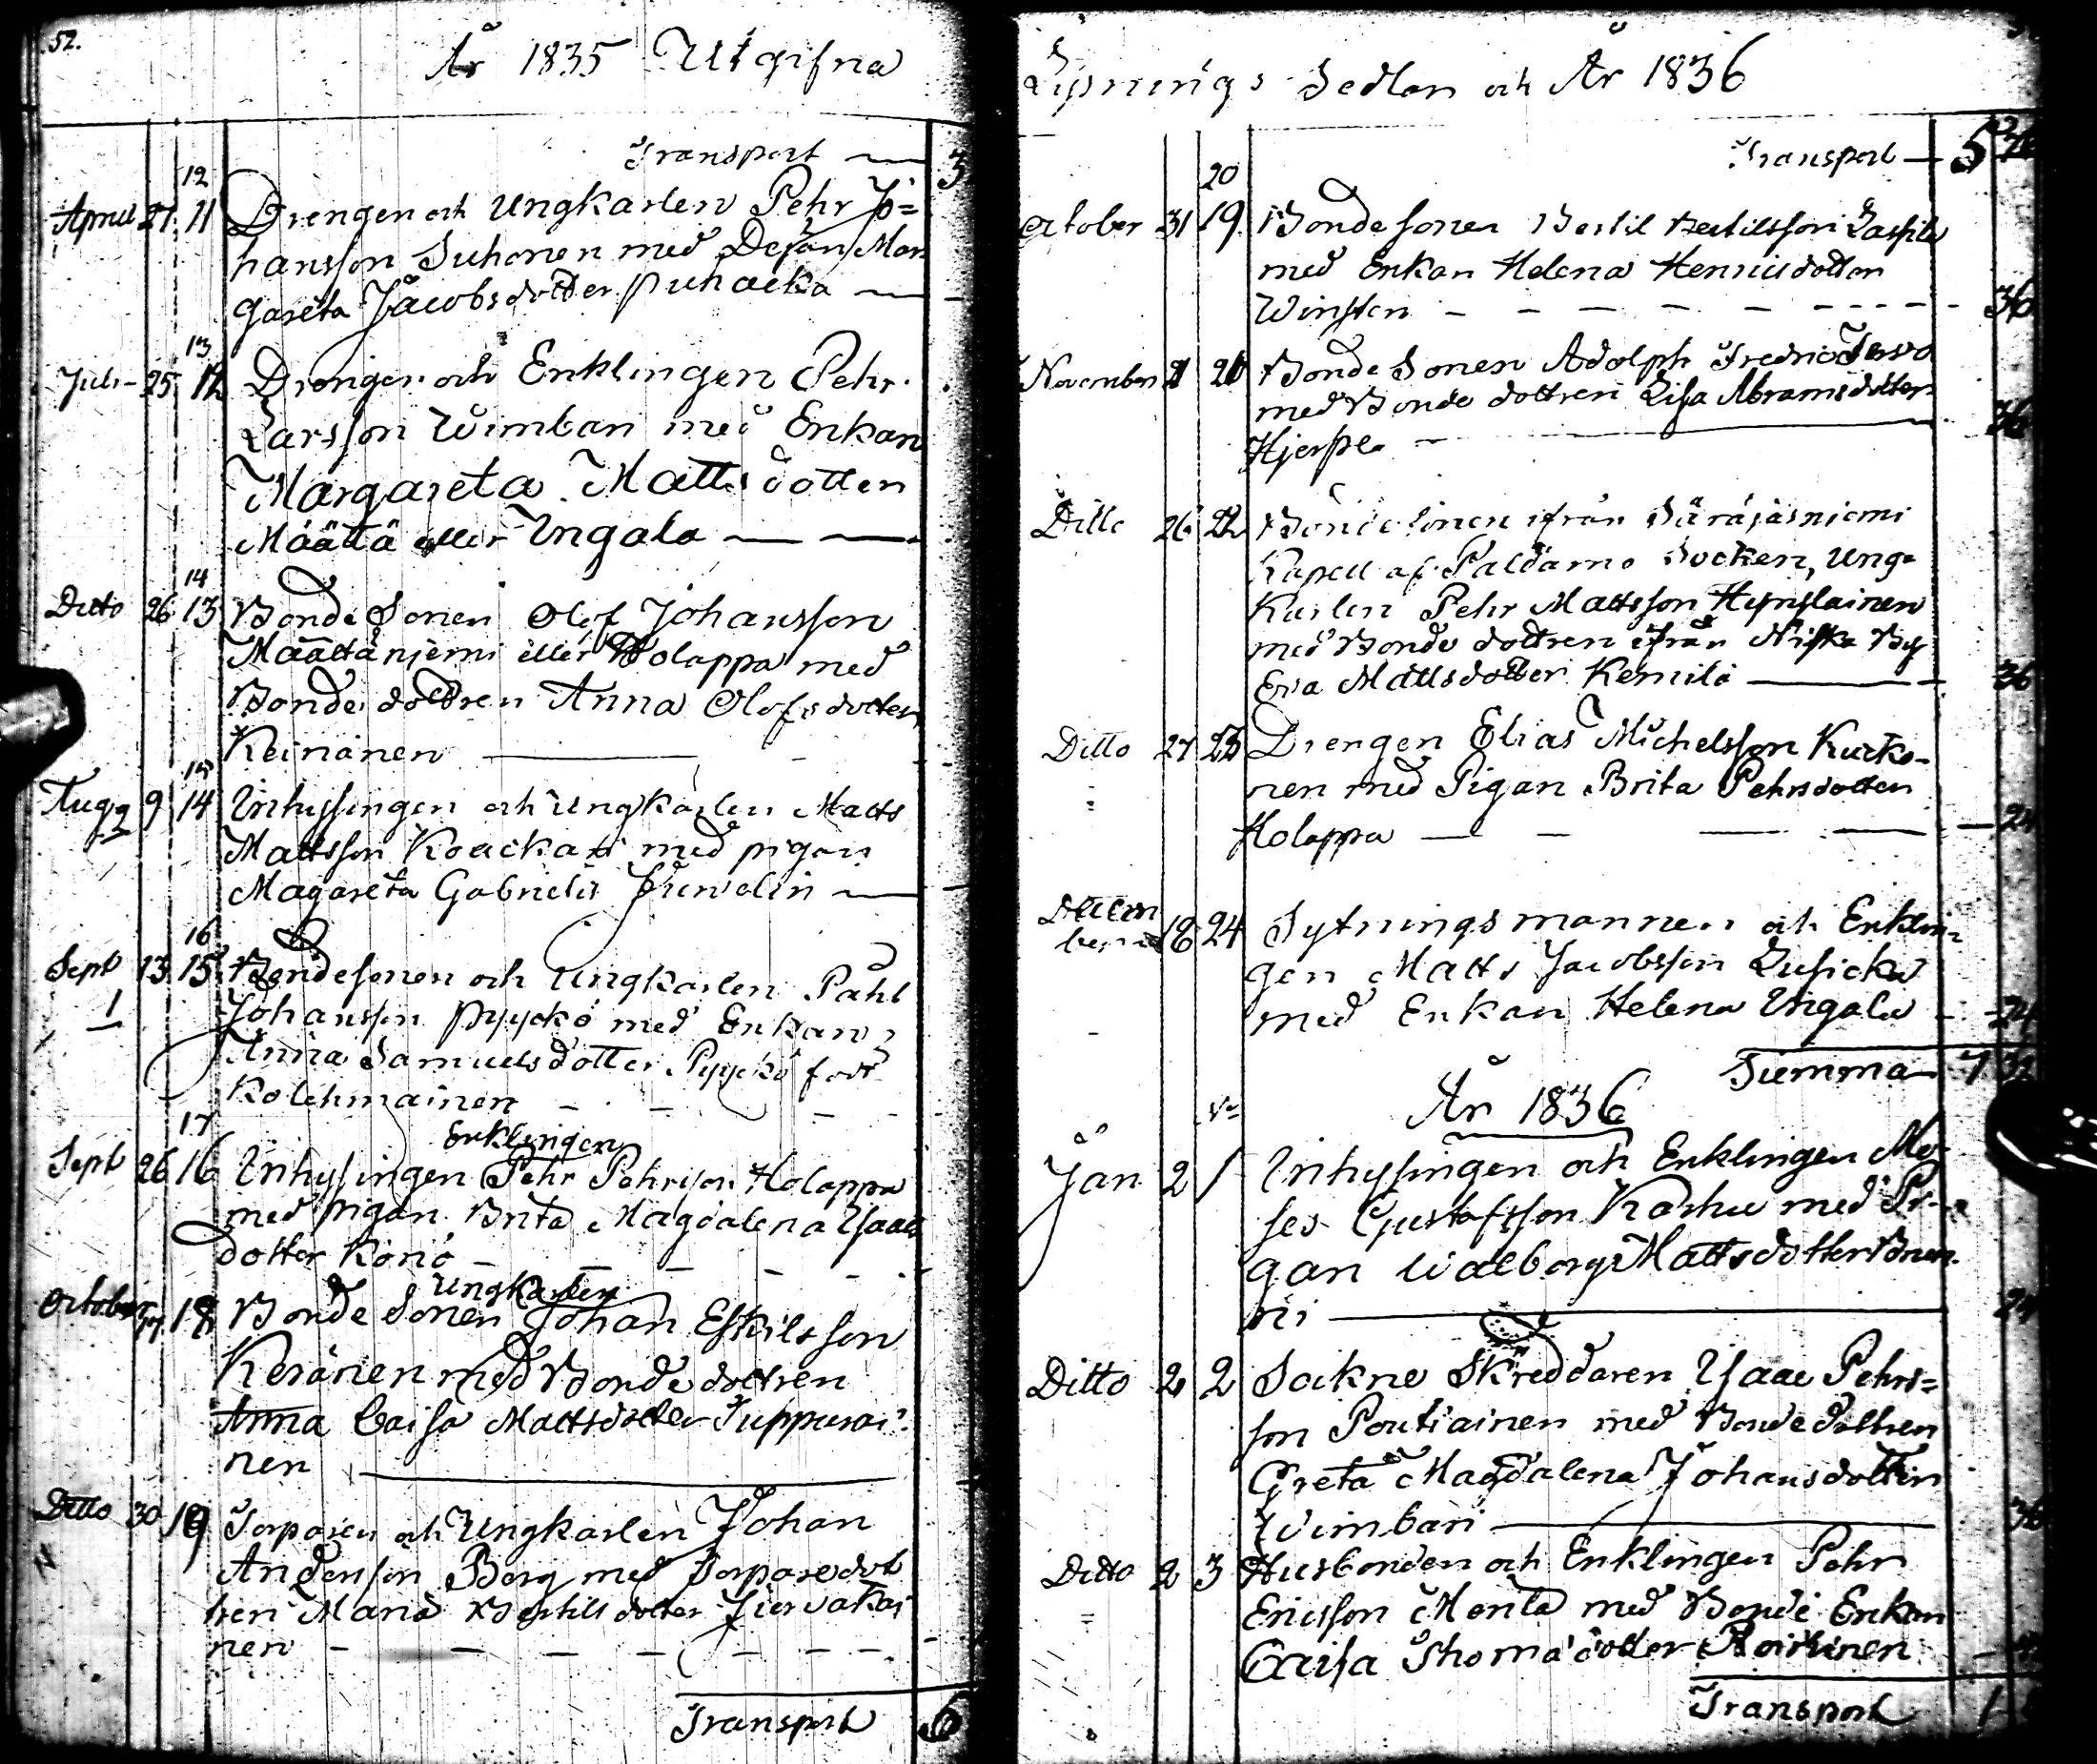 52.
År 1835 Utgifna
Transport — 3
12
April 27 11 Drengen och Ungkarlen Pehr Jo=
hansson Suhonen med Mar
gareta Jacobsdotter Puhacka —
13
Juli 25 12 Drengen och Enklingen Pehr
Larsson Wimbari med Enkan
Margareta Mattsdotter
Määttä eller Ungala — —
14
Ditto 26 13 BondeSonen Olof Johansson
Määttäniemi eller Holappa med
Bonde dottren Anna Olofsdotter
Keinänen —
15
Augg 9 14 Inhysingen och Ungkarlen Matts
Mattsson med pigan
Magareta Gabrielsd
16
Sept 13 15 Bondesonen och Ungkarlen Påhl
1 Johansson Pyyckö med Enkan
Anna Samuelsdotter Pyyckö född
Kolehmainen
17
Enklingen
Sept 26 16 Inhysingen Pehr Pehrsson Holappa
med pigan Brita Magdalena Isaacs
dotter Könö
Ungkarlen
October 18 Bonde Sonen Johan Eskilsson
Keränen med Bonde dottren
Anna Caisa Mattsdotter Tuppurai
nen —
Ditto 30 19 Torparen och Ungkarlen Johan
Andersson Berg med Torparedot
tren Maria Bertilsdotter Jurvakai
nen
Transport 6
Lysnings Sedlar och År 1836
Transport — 5
20
October 31 19 Bondesonen Bertil Bertilsson
med Enkan Helena Henricsdotter
Winsten 36
November 21 Bonde Sonen Adolph Fredric Tervo
med Bonde dottren Lisa Abramsdotter
Hjerpe — 36
Ditto 26 22 Bonde Sonen ifrån Säräisniemi
Kapell af Paldamo Socken, Ung-
Karlen Pehr Mattsson Hyvylainen
med Bonde dottren ifrån Niska By
Eva Mattsdotter Kemilä — 36
Ditto 27 23 Drengen Elias Michelsson Kurko-
nen med Pigan Brita Pehrsdotter
Holappa — 24
Decem
ber 18 24 Sytningsmannen och Enklin
gen Matts Jacobsson Lusicka
med Enkan Helena Ungala 24
Summa 7 32
År 1836
Jan 2 1 Inhysingen och Enklingen Mo-
ses Gustafsson Karhu med Pi-
gan Walborg Mattsdotter
ni — 24
Ditto 2 2 Sockne Skreddaren Isaac Pehrs=
son Poutiainen med Bonde dottren
Greta Magdalena Johansdotter
Wimbari — 36
Ditto 2 3 Husbonden och Enklingen Pehr
Ericsson Mentä med Bonde Enkan
Caisa Thomadotter
Transport 1